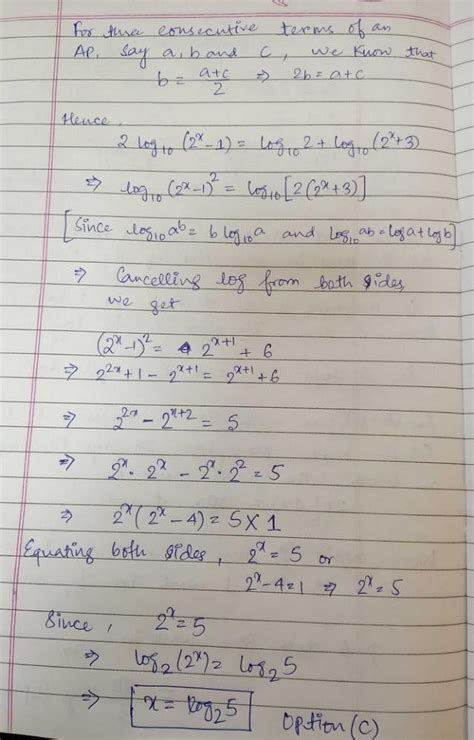 For three consecutive terms of an
AP, say a, b and c, we know that
b = a+c/2 ⇒ 2b = a+c
Hence,
2 log₁₀ (2ˣ-1) = log₁₀ 2 + log₁₀ (2ˣ+3)
⇒ log₁₀ (2ˣ-1)² = log₁₀ [2(2ˣ+3)]
[Since log₁₀ aᵇ = b log₁₀ a and log₁₀ ab = log a + log b]
⇒ Cancelling log from both sides,
we get
(2ˣ-1)² = 2ˣ⁺¹ + 6
⇒ 2²ˣ + 1 - 2ˣ⁺¹ = 2ˣ⁺¹ + 6
⇒ 2²ˣ - 2ˣ⁺² = 5
⇒ 2ˣ · 2ˣ - 2ˣ · 2² = 5
⇒ 2ˣ (2ˣ - 4) = 5 × 1
Equating both sides, 2ˣ = 5 or
2ˣ - 4 = 1 ⇒ 2ˣ = 5
Since, 2ˣ = 5
⇒ log₂ (2ˣ) = log₂ 5
⇒ x = log₂ 5 Option (C)